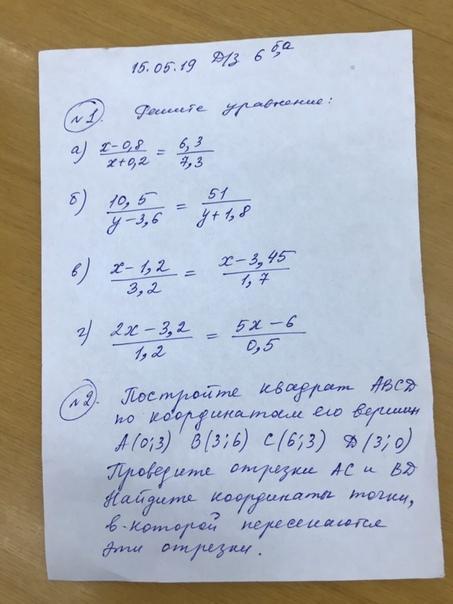 15.05.19 Д/З 6 б,а
№1. Решите уравнение:
а) x-0,8/x+0,2 = 6,3/7,3
б) 10,5/y-3,6 = 51/y+1,8
в) x-1,2/3,2 = x-3,45/1,7
г) 2x-3,2/1,2 = 5x-6/0,5
№2. Постройте квадрат ABCD
по координатам его вершин
A(0;3) B(3;6) C(6;3) D(3;0)
Проведите отрезки AC и BD
Найдите координаты точки,
в которой пересекаются
эти отрезки.